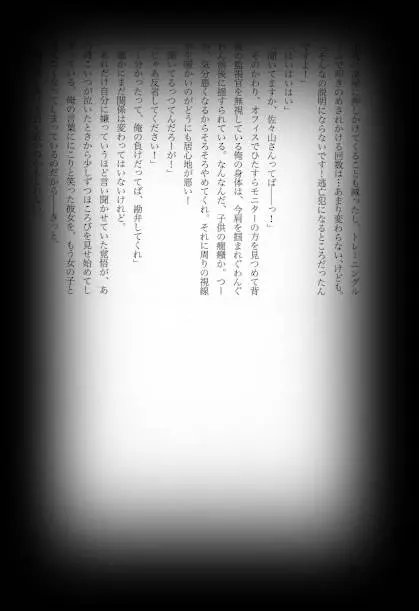 人で深酒に押しかけてることも減ったし、トレーニングル
ームで叩きのめされかける回数は…あまり変わらない、けども。
「そんなの説明にならないです！逃亡犯になるところだったん
ですよ！」
「はいはいはい」
「聞いてますか、佐々山さんってば――っ！」
そのかわり、オフィスでひたすらモニターの方を見つめて背
後の監視官を無視している俺の身体は、今肩を掴まれぐわんぐ
わん前後に揺すられている。なんなんだ、子供の癇癪か。つー
か、気分悪くなるからそろそろやめてくれ。それに周りの視線
が生暖かいのがどうにも居心地が悪い！
「聞いてるっつってんだろーが！」
「じゃあ反省してください！」
「分かったって、俺の負けだってば、勘弁してくれ」
確かにまだ関係は変わってはいないけれど。
あれだけ自分に嫌っていうほど言い聞かせていた覚悟が、あ
の時こいつが泣いたときから少しずつほころびを見せ始めてし
まっている。俺の言葉ににこりと笑った彼女を、もう女の子と
してしまっているのだから――きっと、